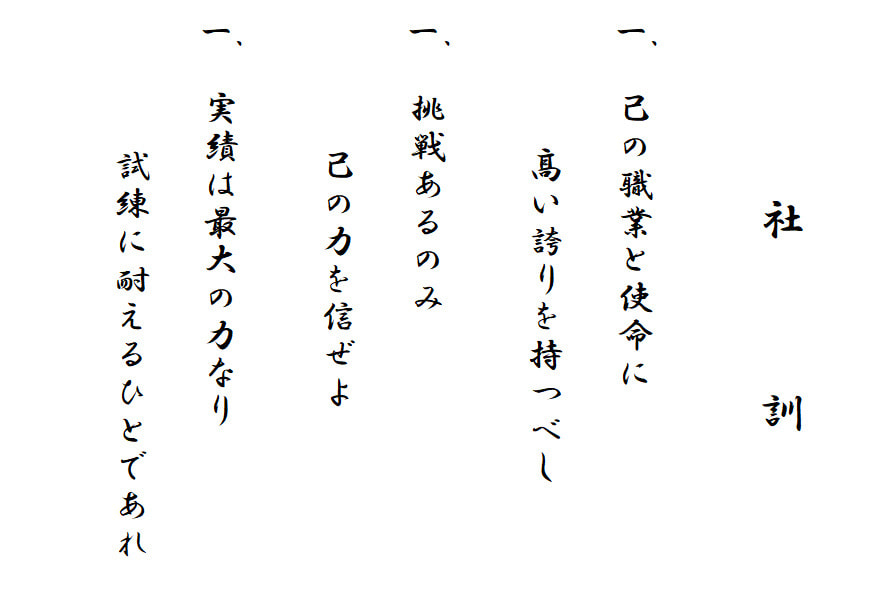 社訓
一、己の職業と使命に
高い誇りを持つべし
一、挑戦あるのみ
己の力を信ぜよ
一、実績は最大の力なり
試練に耐えるひとであれ